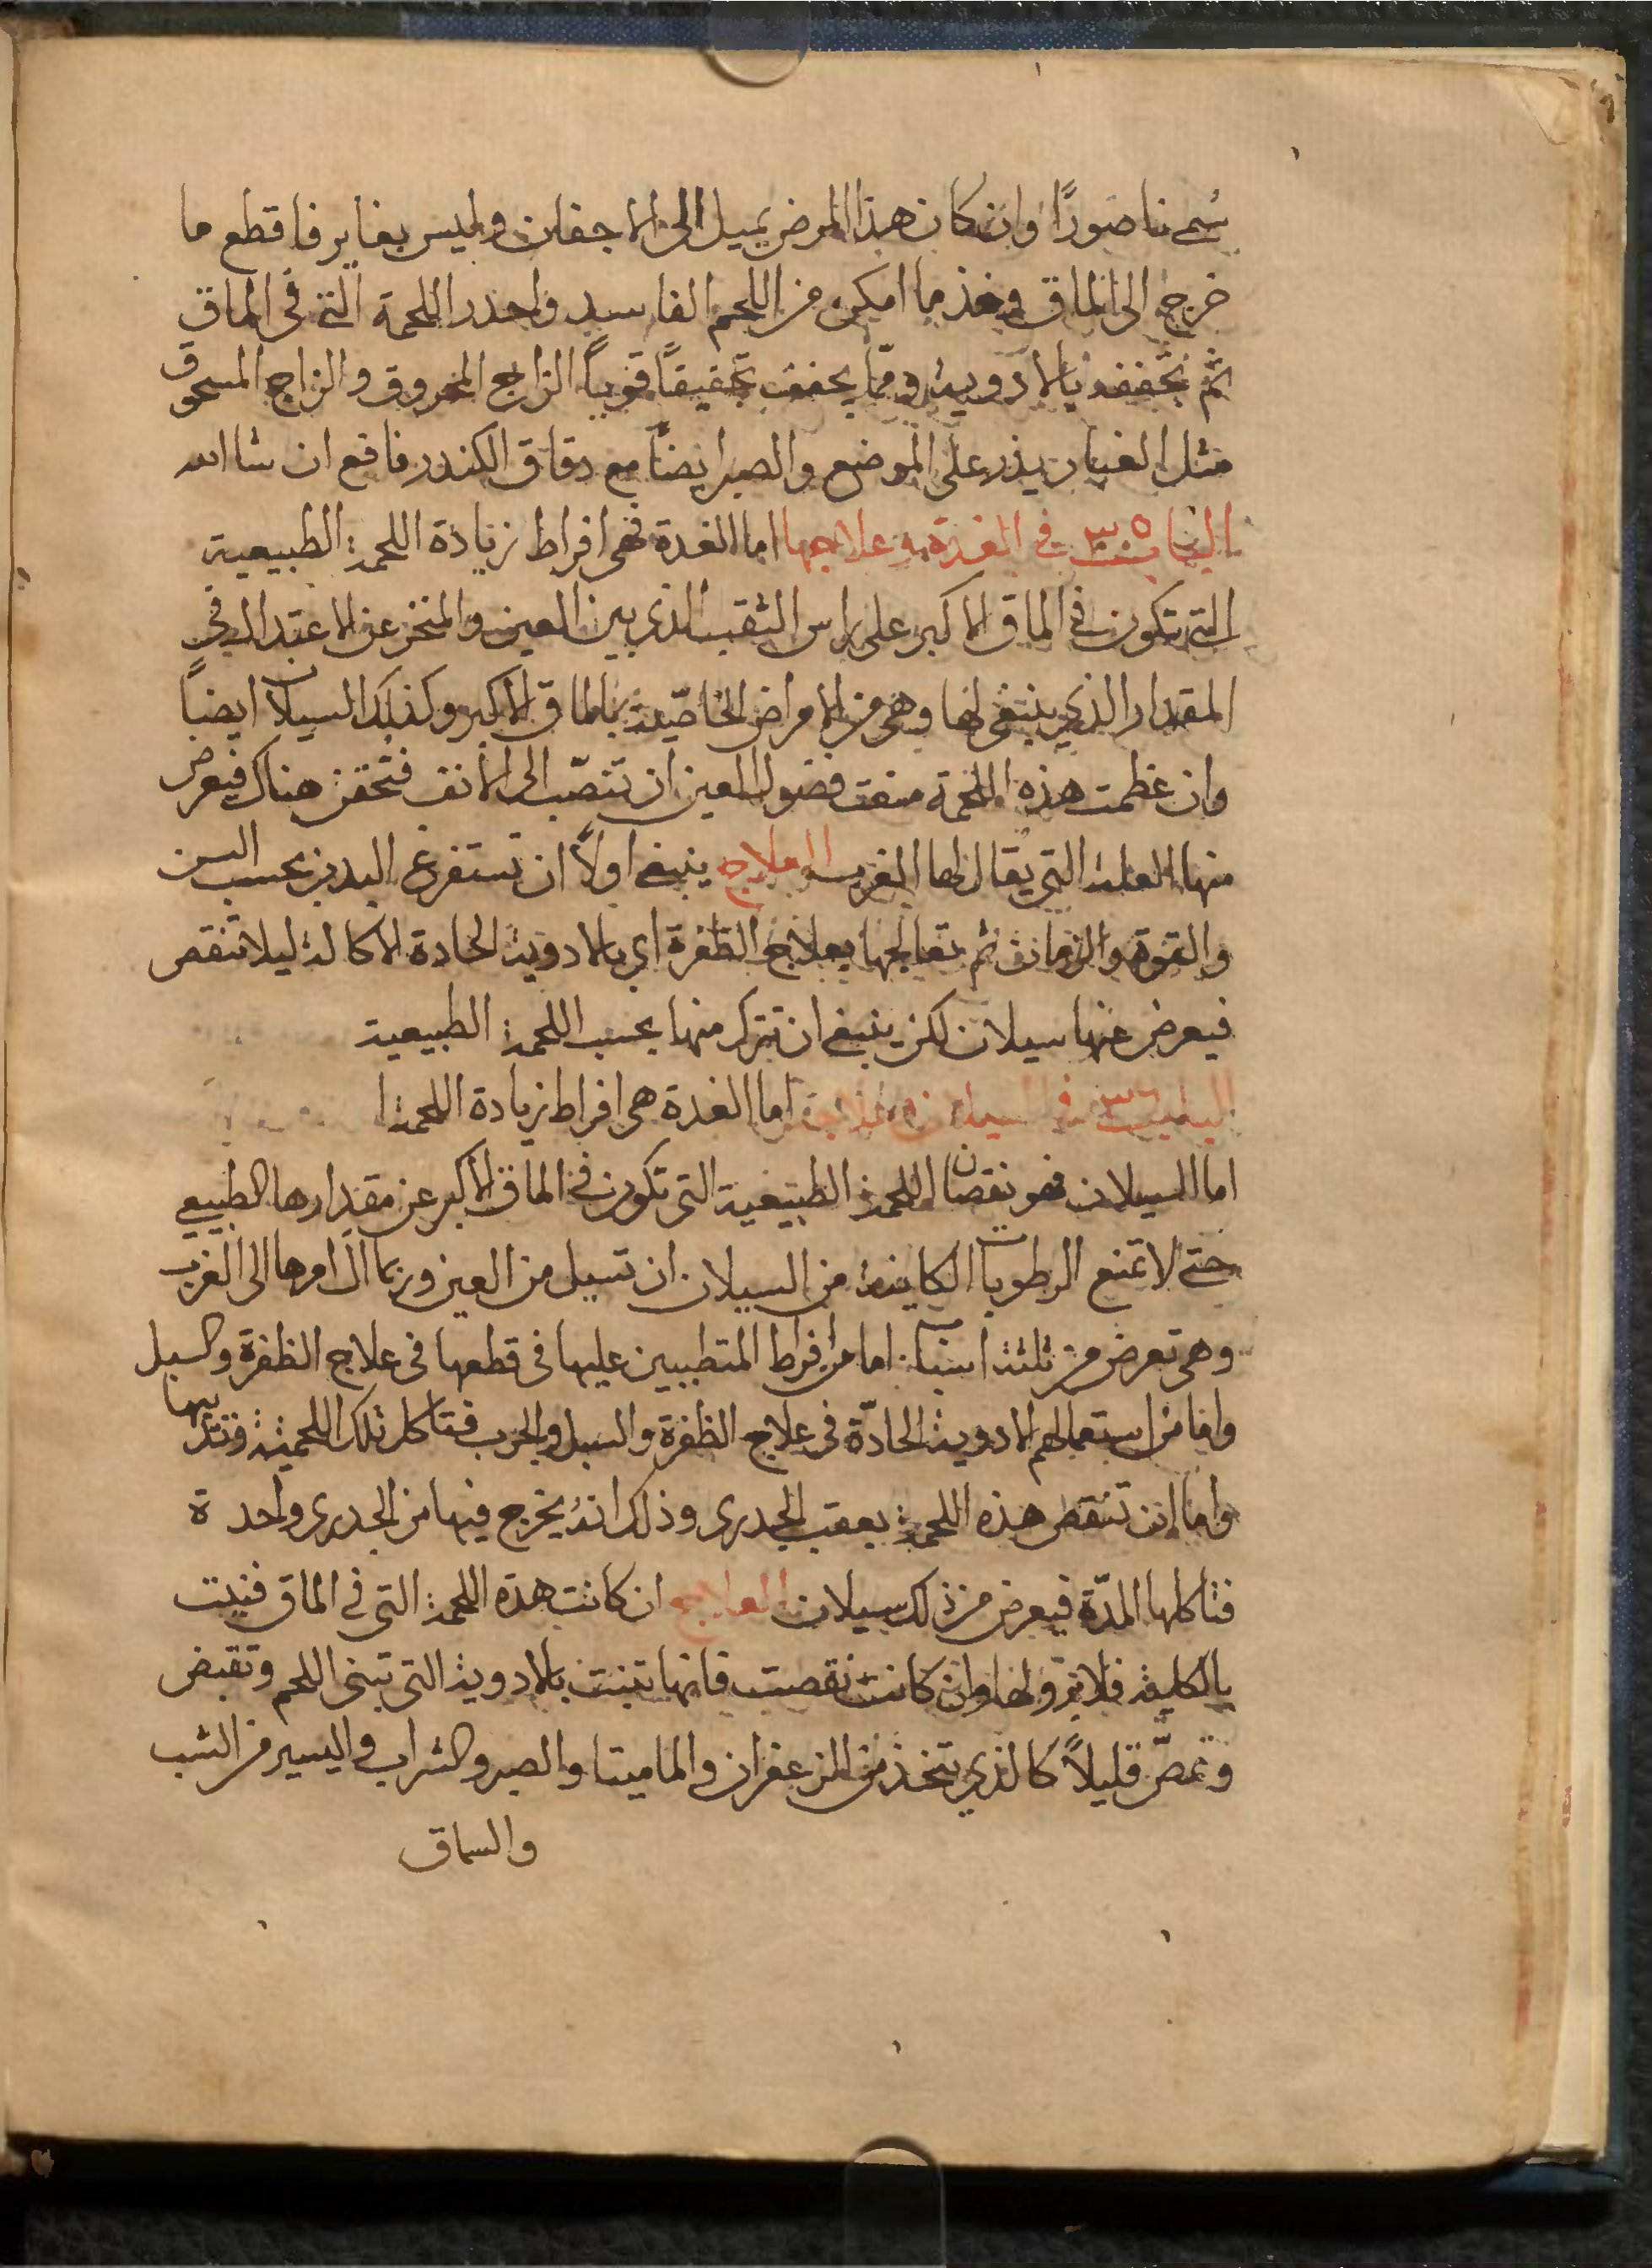 سُمى ناصورًا وان كان هذا المرض يميل الى الاجفان وليس بغاير فاقطع ما
خرج الى الماق وخذ ما امكن من اللحم الفاسد واحذر اللحمة التى فى الماق
ثم تجففه بالادوية ومما يجفف تجفيفاً قوياً الزاج المحروق والزاج المسحوق
مثل الغبار يذر على الموضع والصبر ايضاً مع دقاق الكندر نافع ان شا الله
الباب ٣٥ في الغدة وعلاجها اما الغدة فهى افراط زيادة اللحمة الطبيعية
التى تكون فى الماق الاكبر على راس الثقب الذى بين العين والمنخر عن الاعتدال فى
المقدار الذى ينبغى لها وهى من الامراض الخاصّية بالماق الاكبر وكذلك السيلان ايضاً
وان عظمت هذه اللحمة منعت فضول العين ان تنصّب الى الانف فتحقن هناك فيعرض
منها العلة التى يقال لها الغرب العلاج ينبغى اولاً ان تستفرغ البدن بحسب السن
والقوة والزمان ثم تعالجها بعلاج الظفرة اى بالادوية الحادة الاكالة ليلا تنقص
فيعرض عنها سيلان لكن ينبغى ان تترك منها بحسب اللحمة الطبيعية
الباب ٣٦ في السيلان وعلاجه اما الغدة هى افراط زيادة اللحمة ا
اما السيلان فهو نقصان اللحمة الطبيعية التى تكون فى الماق الاكبر عن مقدارها الطبيعي
حتى لا تمنع الرطوبات الكاينة من السيلان ان تسيل من العين وربما آل امرها الى الغرب
وهى تعرض من ثلثة اسباب اما من افراط المتطببين عليها فى قطعها فى علاج الظفرة والسبل
واما من استعمالهم الادوية الحادّة فى علاج الظفرة والسبل والجرب فتاكل تلك اللحمية وتذيبها
واما ان تنقص هذه اللحمة بعقب الجدرى وذلك انهُ يخرج فيها من الجدرى واحدة
فتاكلها المدّة فيعرض من ذلك سيلان العلاج ان كانت هذه اللحمة التى فى الماق فنيت
بالكلية فلا برو لها وان كانت نقصت فانها تنبت بالادوية التى تبنى اللحم وتقبض
وتمصّ قليلاً كالذي يتخذ من الزعفران والماميتا والصبر والشراب واليسير من الشب
والسماق